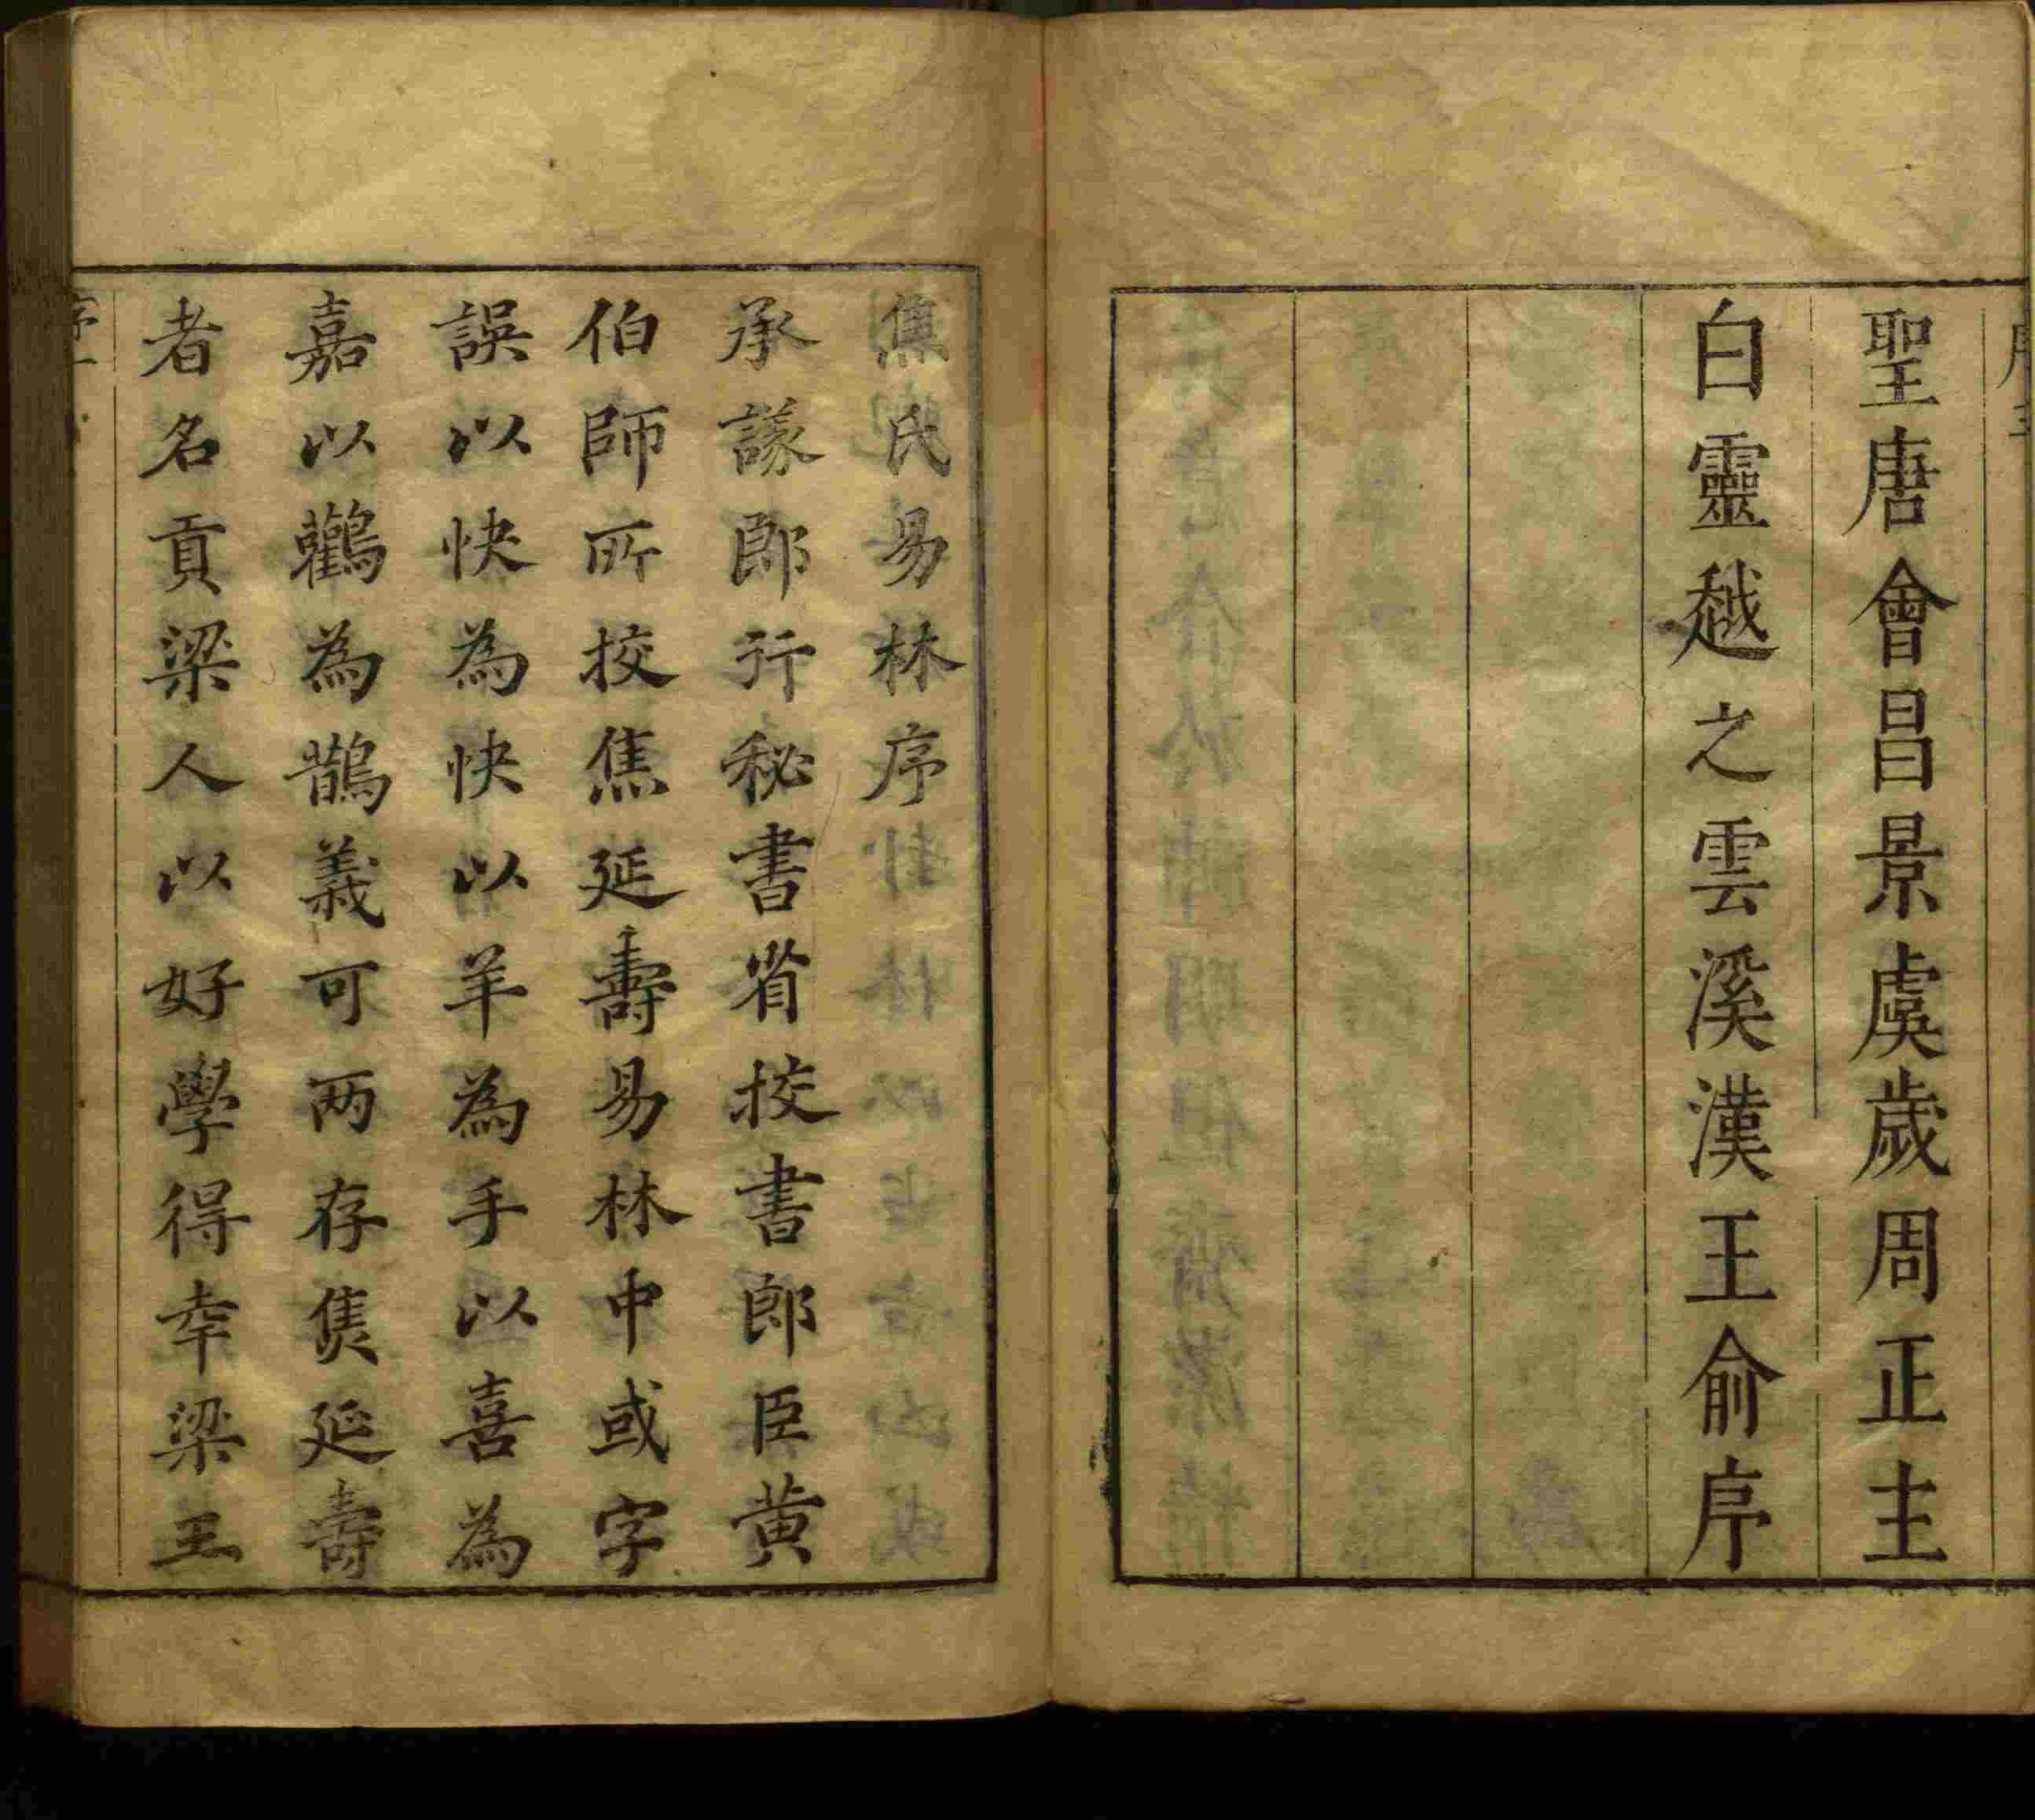 聖唐會昌景虞歲周正主
白靈越之雲溪漢王俞序
焦氏易林序
承議郎行秘書省挍書郎臣黄
伯師所挍焦延壽易林中或字
誤以快為快以羊為手以喜為
嘉以鸛為鵲義可两存焦延壽
者名貢梁人以好學得幸梁王
序一